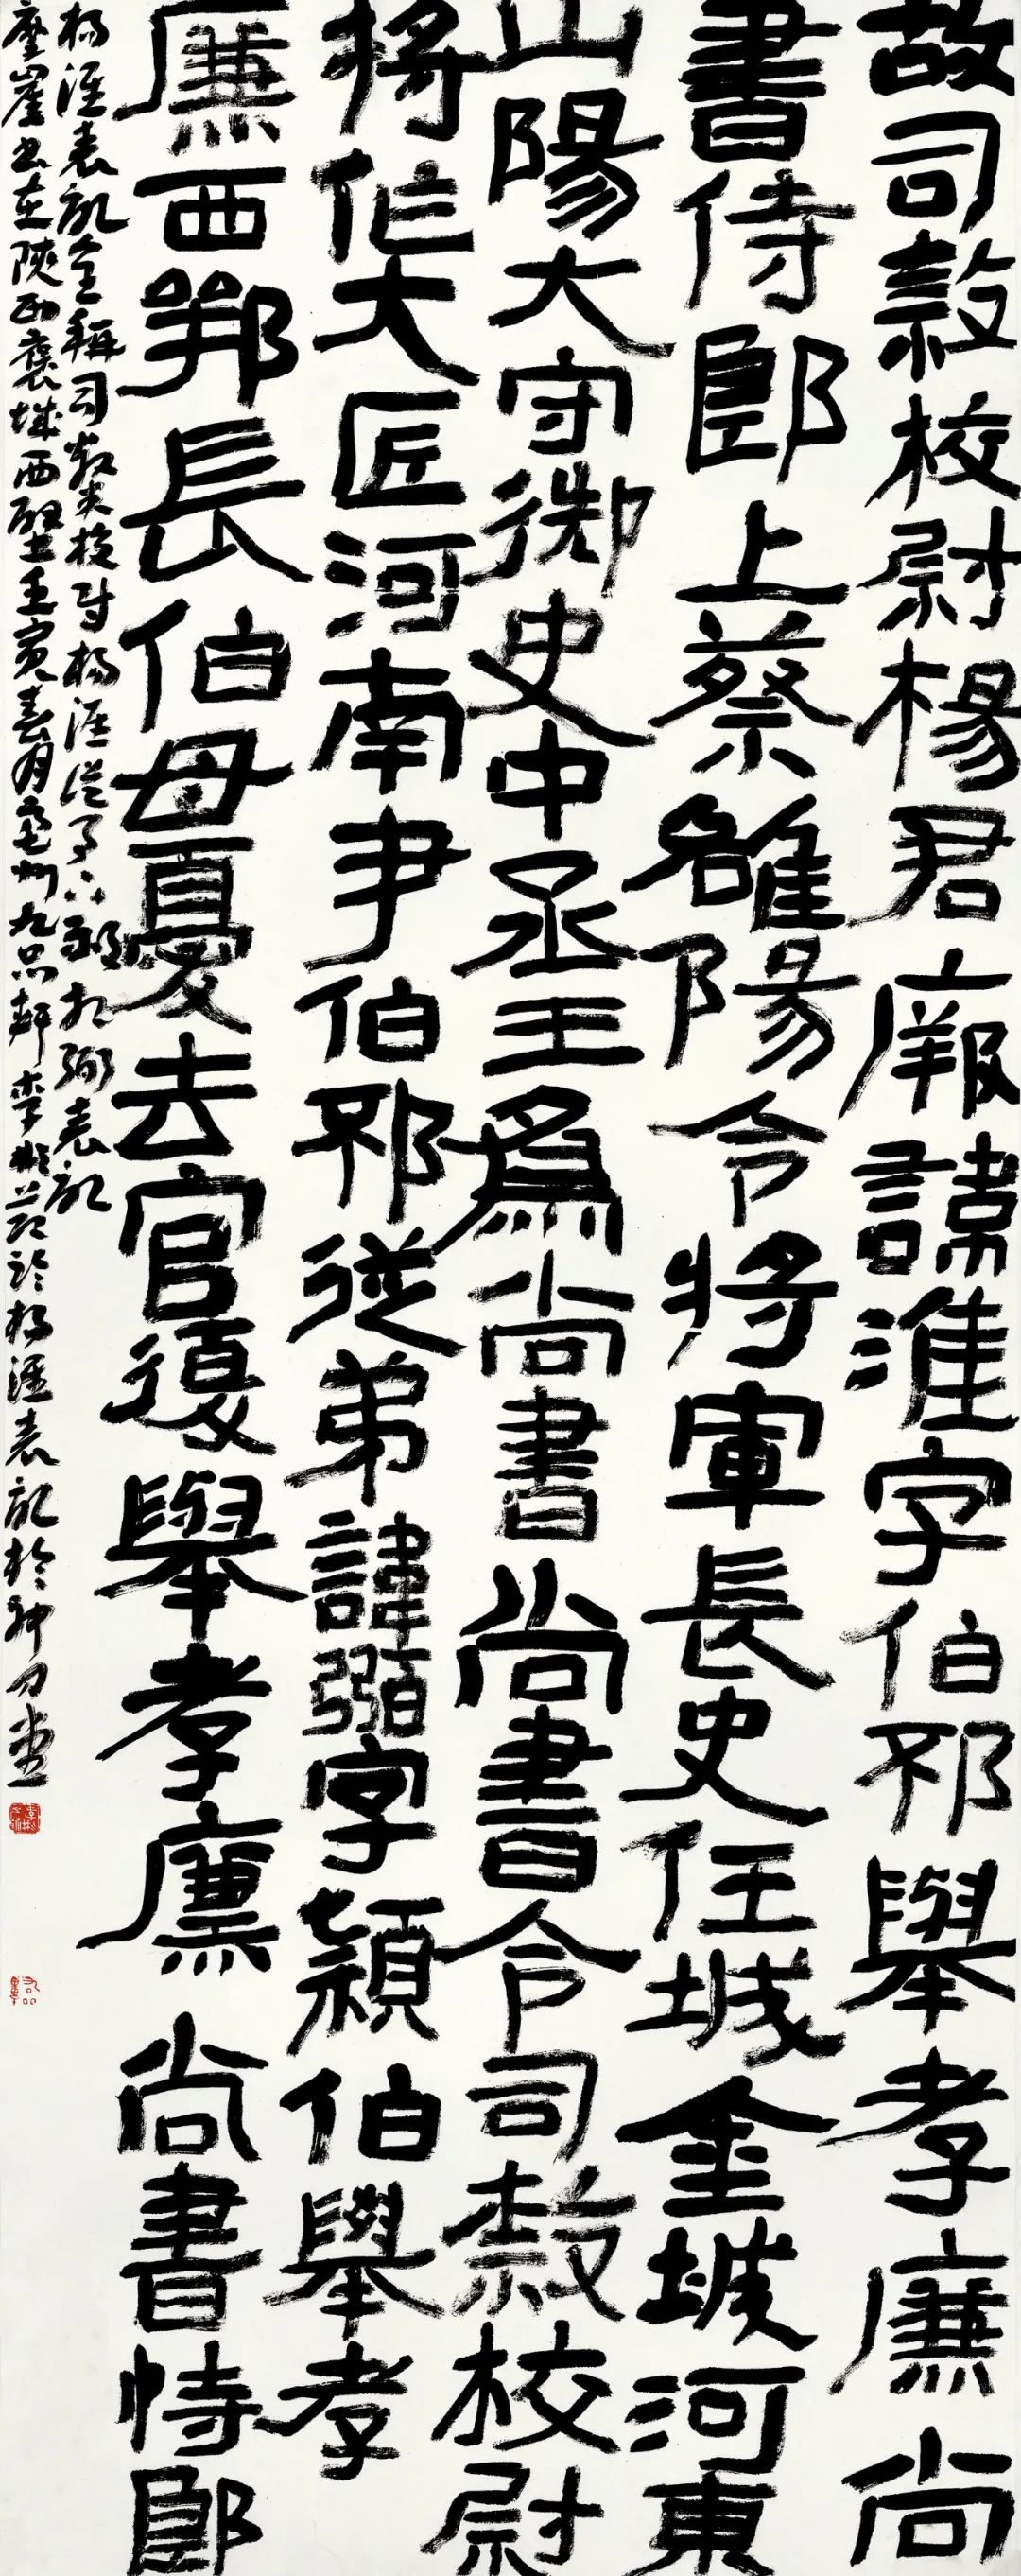 故司隸校尉楊君厥諱淮字伯邳舉孝廉尚
書侍郎上蔡雒陽令將軍長史任城金城河東
山陽大守御史中丞王為尚書尚書令司隸校尉
將作大匠河南尹伯邳從弟諱弼字穎伯舉孝
廉西鄂長伯母憂去官復舉孝廉尚書侍郎
楊淮表記全稱司隸校尉楊淮從事下邳相弼表記
摩崖書在陝西褒城西壁壬寅春月亳州九品軒李楊淮表記於神刀堂